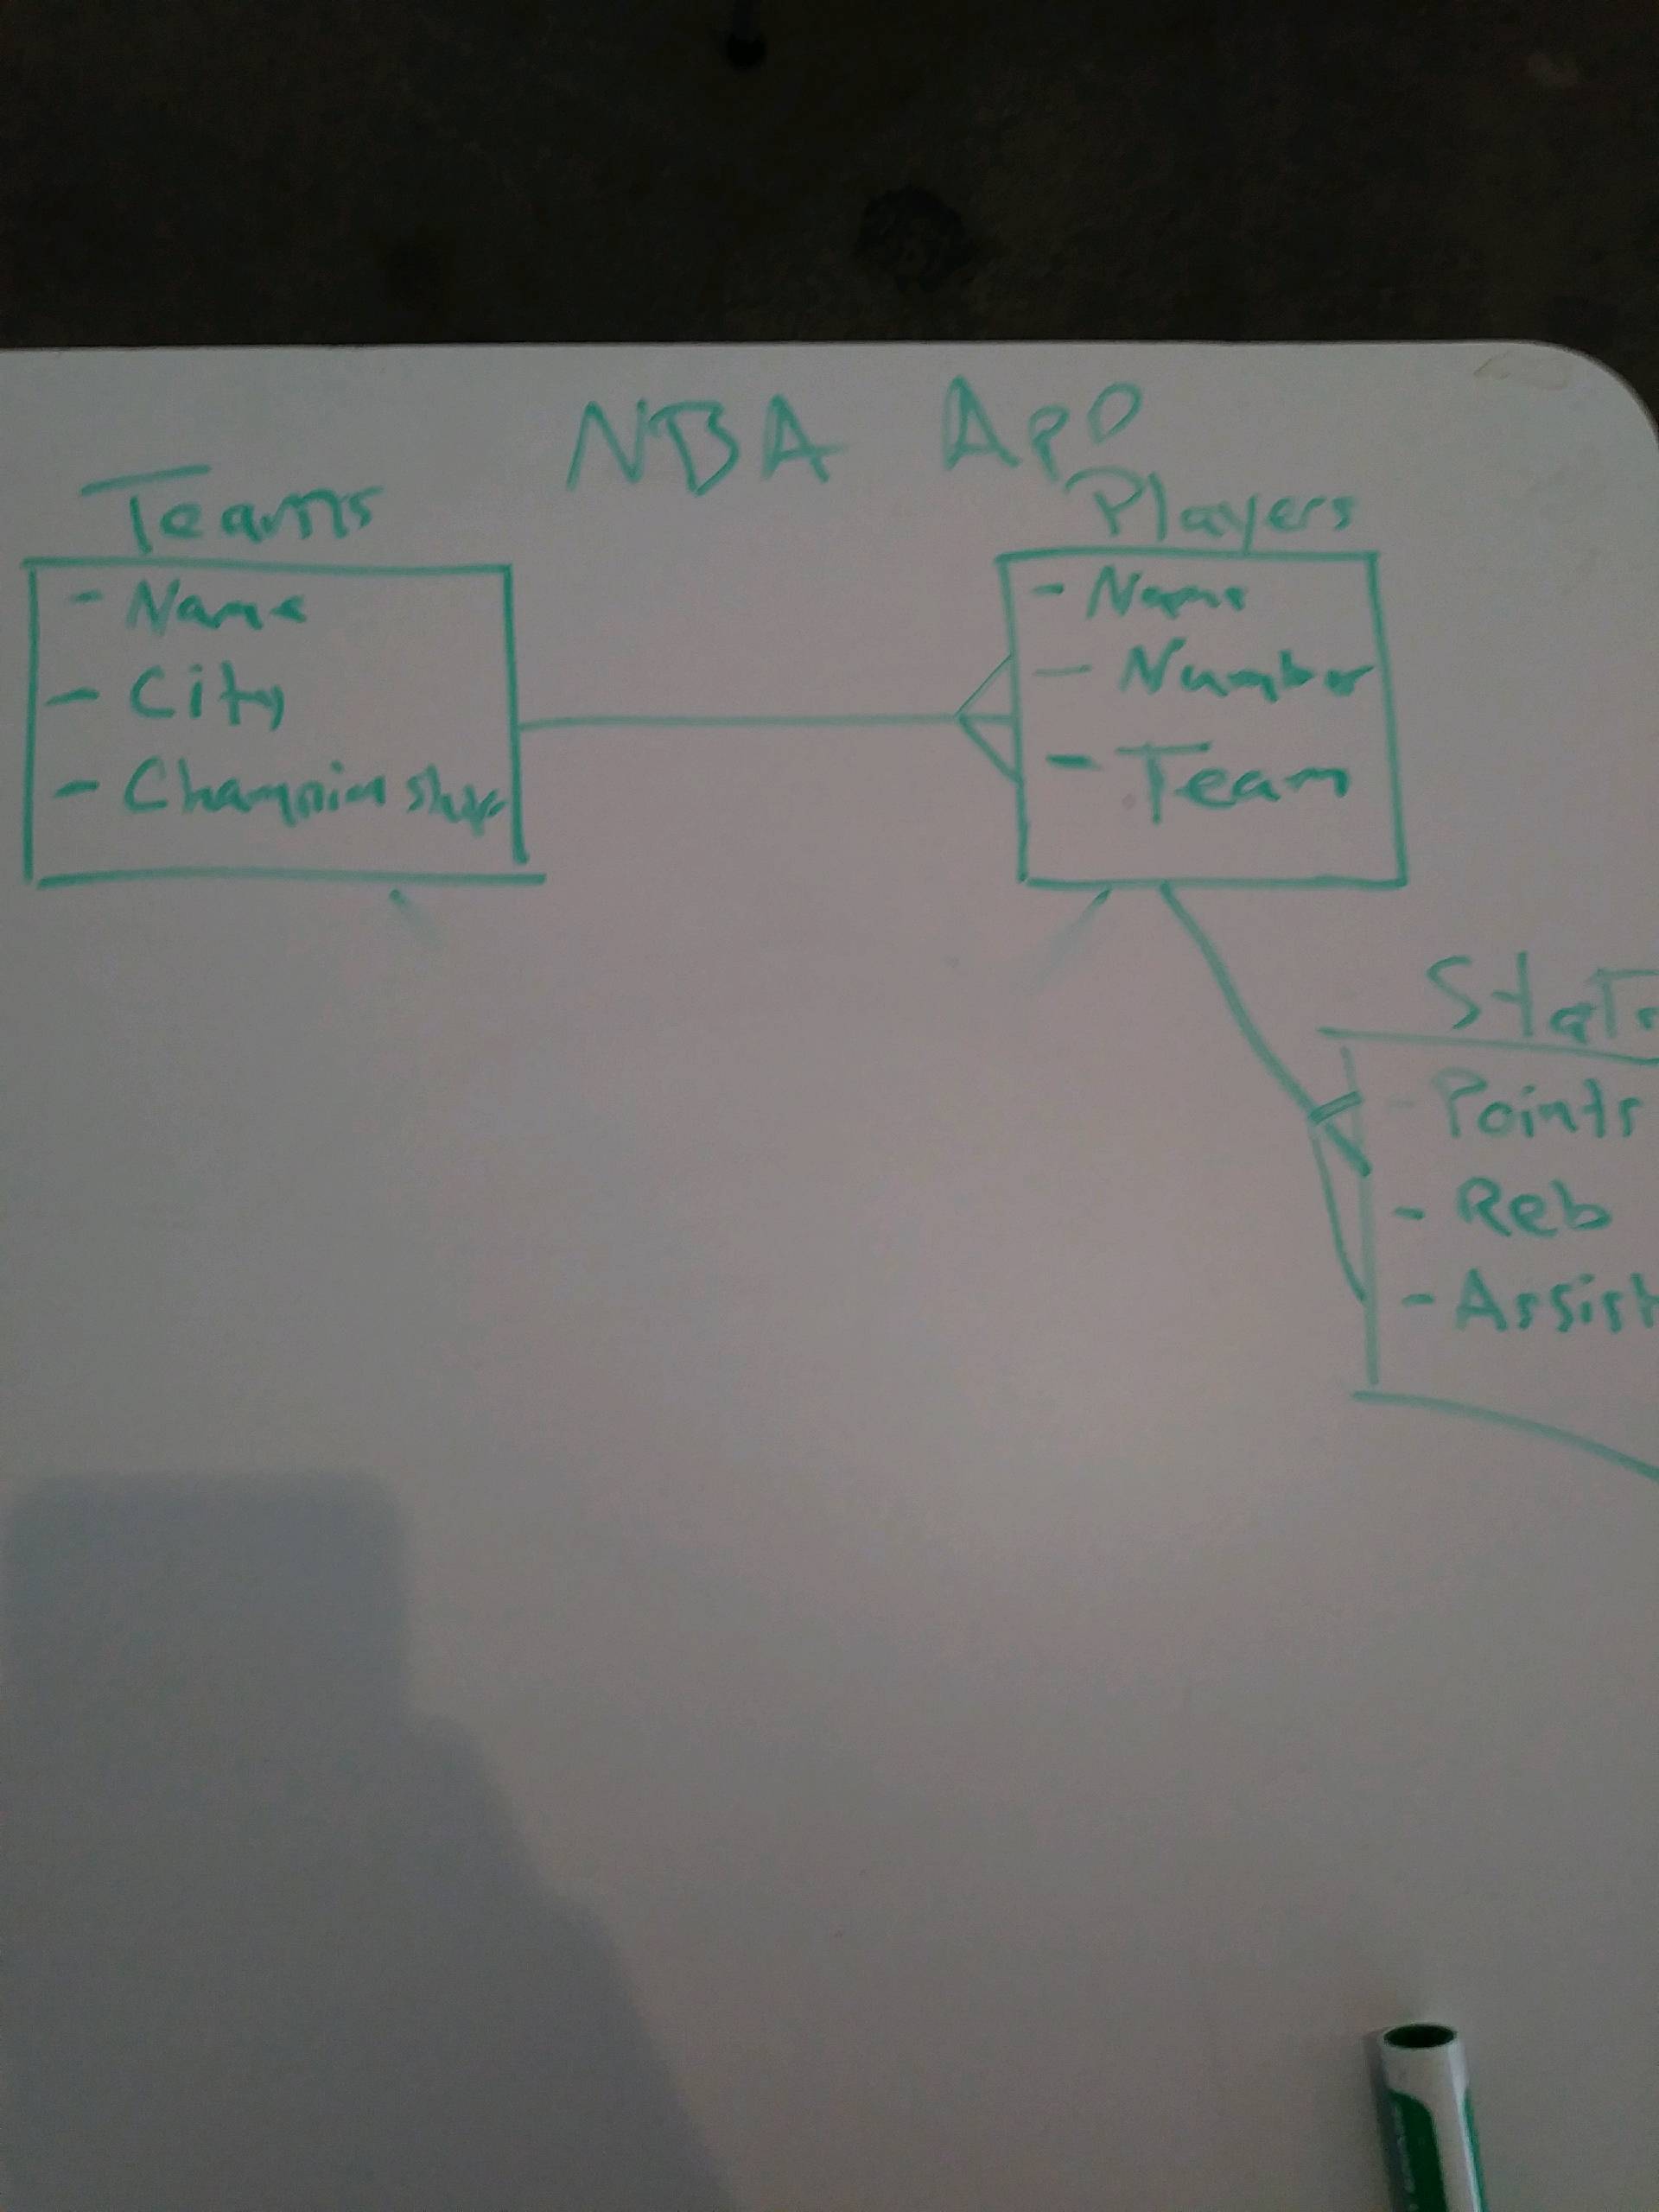 NBA App
Teams
- Name
- City
- Championships
Players
- Name
- Number
- Team
Stats
- Points
- Reb
- Assist